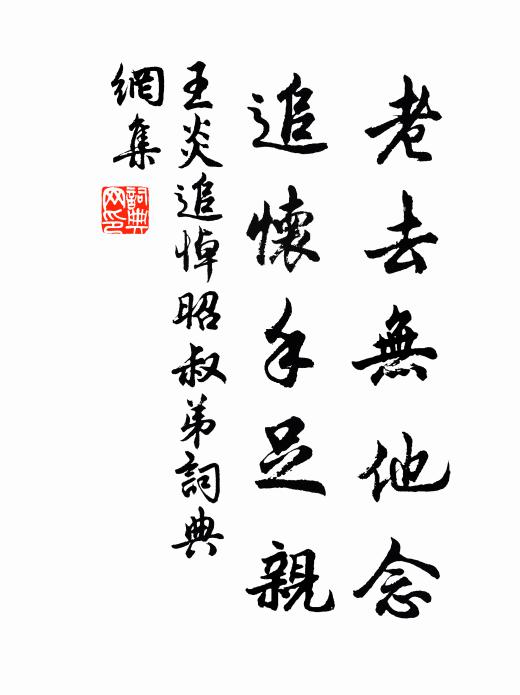 老去無他念
追懷手足親
王炎追悼昭叔弟詞典
網集
詞典
网印